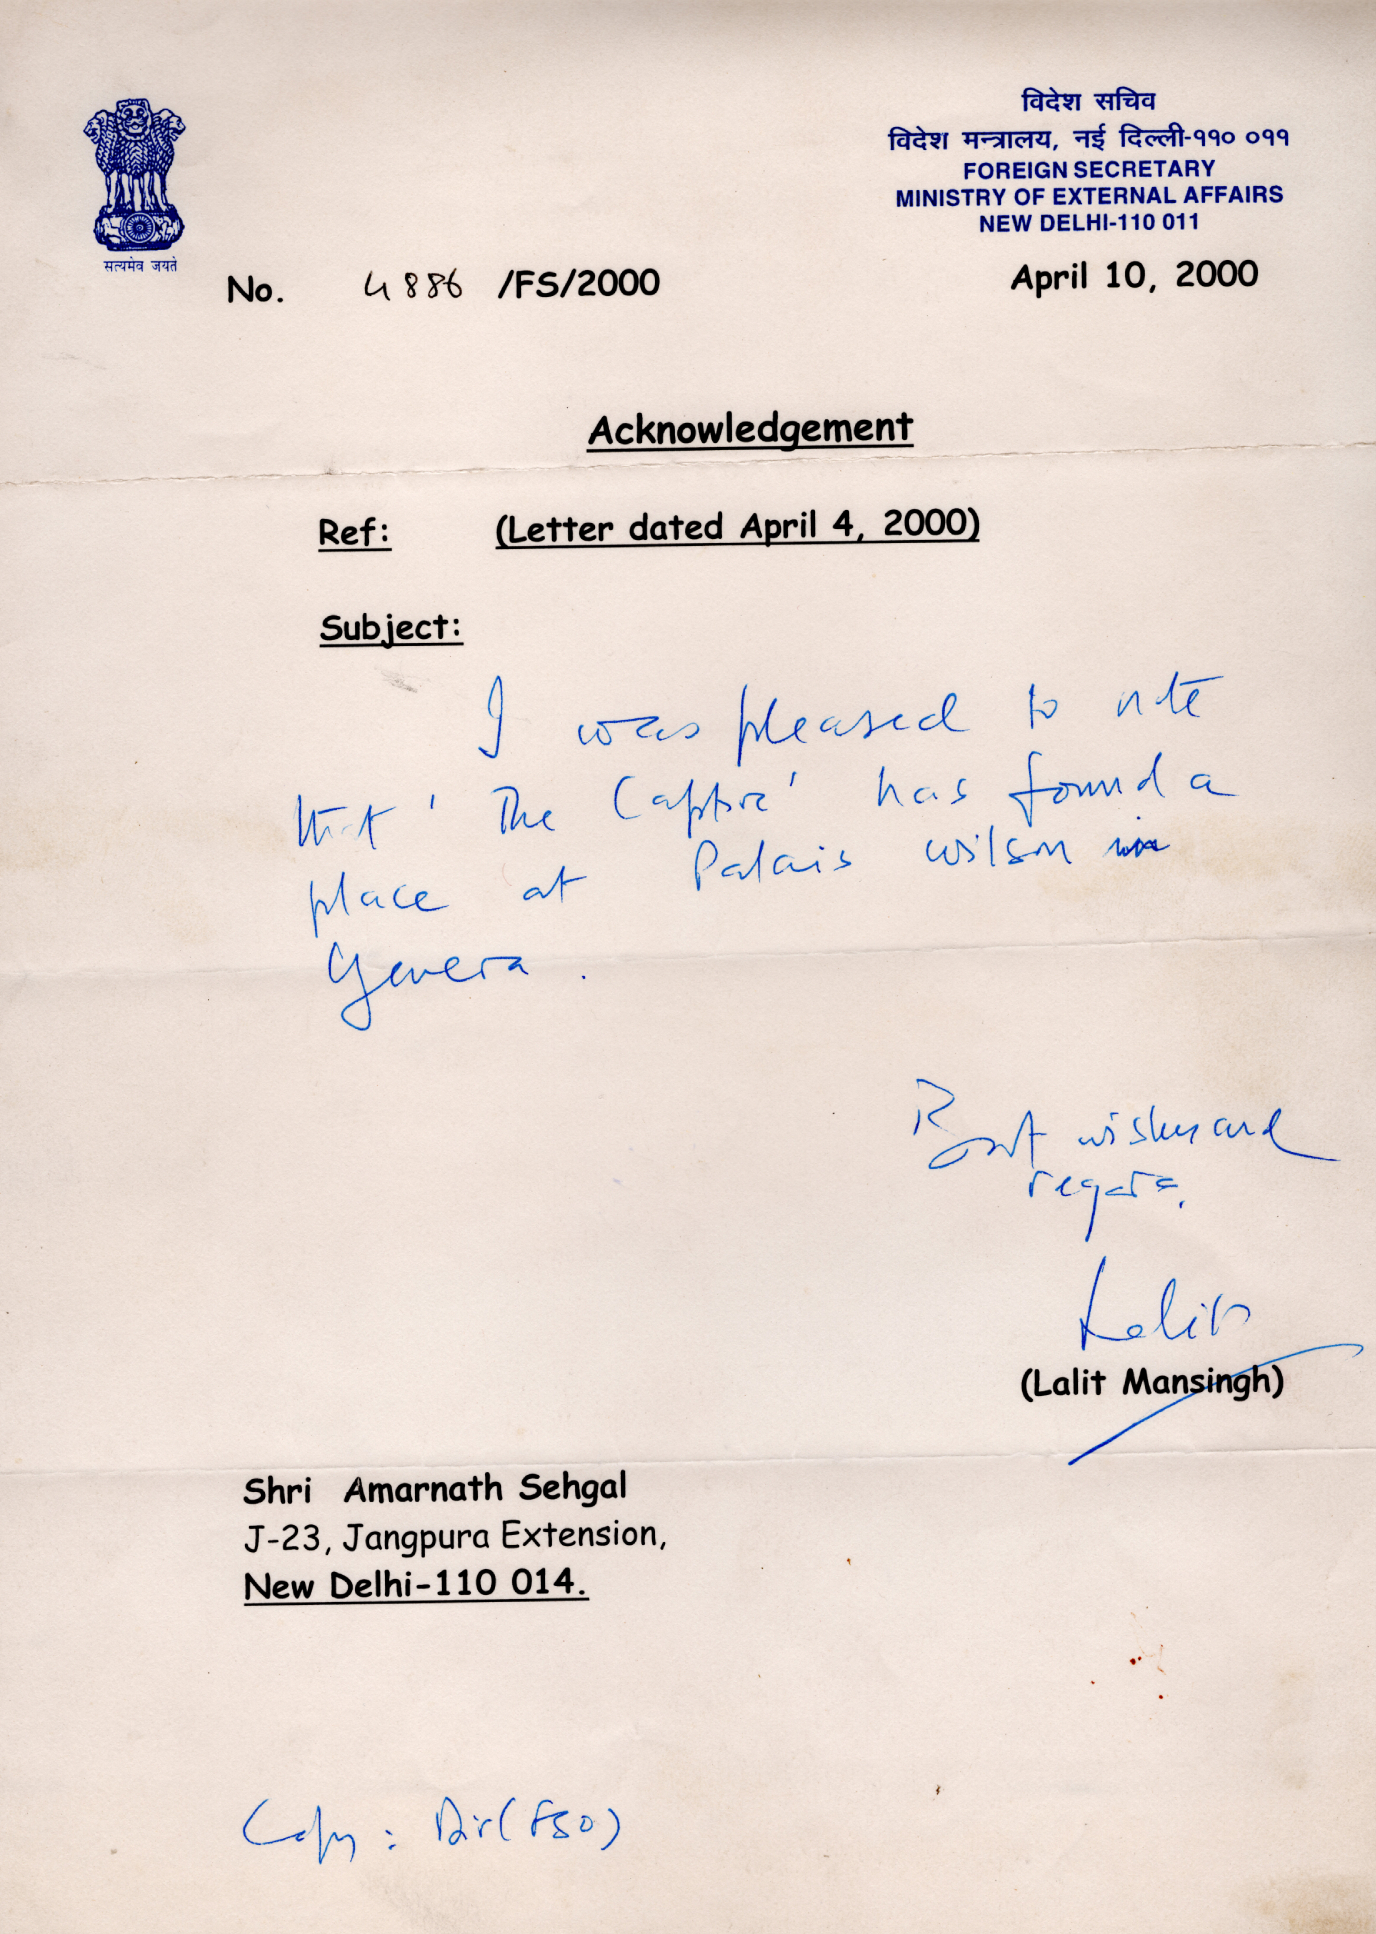 विदेश सचिव
विदेश मन्त्रालय, नई दिल्ली-११० ०११
FOREIGN SECRETARY
MINISTRY OF EXTERNAL AFFAIRS
NEW DELHI-110 011
सत्यमेव जयते
No. 4886 /FS/2000
April 10, 2000
Acknowledgement
Ref: (Letter dated April 4, 2000)
Subject:
I was pleased to note
that 'The Captive' has found a
place at Palais Wilson in
Geneva.
Best wishes and
regards,
Lalit
(Lalit Mansingh)
Shri Amarnath Sehgal
J-23, Jangpura Extension,
New Delhi-110 014.
Copy: Dir(FSO)